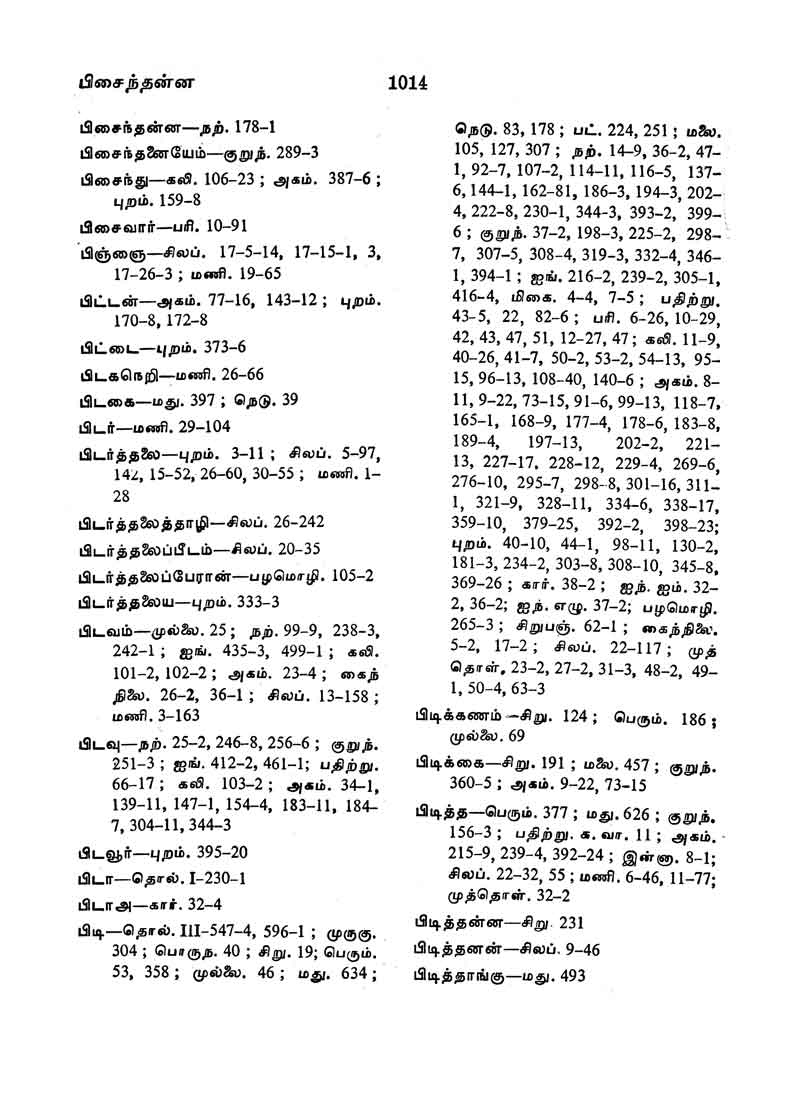 பிசைந்தன்ன 1014
பிசைந்தன்ன—நற். 178–1
பிசைந்தனையேம்—குறுந். 289–3
பிசைந்து—கலி. 106–23 ; அகம். 387–6 ;
புறம். 159–8
பிசைவார்—பரி. 10–91
பிஞ்ஞை—சிலப். 17–5–14, 17–15–1, 3,
17–26–3 ; மணி. 19–65
பிட்டன்—அகம். 77–16, 143–12 ; புறம்.
170–8, 172–8
பிட்டை—புறம். 373–6
பிடகநெறி—மணி. 26–66
பிடகை—மது. 397 ; நெடு. 39
பிடர்—மணி. 29–104
பிடர்த்தலை—புறம். 3–11 ; சிலப். 5–97,
142, 15–52, 26–60, 30–55 ; மணி. 1–
28
பிடர்த்தலைத்தாழி—சிலப். 26–242
பிடர்த்தலைப்பீடம்—சிலப். 20–35
பிடர்த்தலைப்பேரான்—பழமொழி. 105–2
பிடர்த்தலைய—புறம். 333–3
பிடவம்—முல்லை. 25 ; நற். 99–9, 238–3,
242–1 ; ஐங். 435–3, 499–1 ; கலி.
101–2, 102–2 ; அகம். 23–4 ; கைந்
நிலை. 26–2, 36–1 ; சிலப். 13–158 ;
மணி. 3–163
பிடவு—நற். 25–2, 246–8, 256–6 ; குறுந்.
251–3 ; ஐங். 412–2, 461–1; பதிற்று.
66–17 ; கலி. 103–2 ; அகம். 34–1,
139–11, 147–1, 154–4, 183–11, 184–
7, 304–11, 344–3
பிடவூர்—புறம். 395–20
பிடா—தொல். I–230–1
பிடாஅ—கார். 32–4
பிடி—தொல். III–547–4, 596–1 ; முருகு.
304 ; பொருந. 40 ; சிறு. 19; பெரும்.
53, 358 ; முல்லை. 46 ; மது. 634 ;
நெடு. 83, 178 ; பட். 224, 251 ; மலை.
105, 127, 307 ; நற். 14–9, 36–2, 47–
1, 92–7, 107–2, 114–11, 116–5, 137–
6, 144–1, 162–81, 186–3, 194–3, 202–
4, 222–8, 230–1, 344–3, 393–2, 399–
6 ; குறுந். 37–2, 198–3, 225–2, 298–
7, 307–5, 308–4, 319–3, 332–4, 346–
1, 394–1 ; ஐங். 216–2, 239–2, 305–1,
416–4, மிகை. 4–4, 7–5 ; பதிற்று.
43–5, 22, 82–6 ; பரி. 6–26, 10–29,
42, 43, 47, 51, 12–27, 47 ; கலி. 11–9,
40–26, 41–7, 50–2, 53–2, 54–13, 95–
15, 96–13, 108–40, 140–6 ; அகம். 8–
11, 9–22, 73–15, 91–6, 99–13, 118–7,
165–1, 168–9, 177–4, 178–6, 183–8,
189–4, 197–13, 202–2, 221–
13, 227–17, 228–12, 229–4, 269–6,
276–10, 295–7, 298–8, 301–16, 311–
1, 321–9, 328–11, 334–6, 338–17,
359–10, 379–25, 392–2, 398–23;
புறம். 40–10, 44–1, 98–11, 130–2,
181–3, 234–2, 303–8, 308–10, 345–8,
369–26 ; கார். 38–2 ; ஐந். ஐம். 32–
2, 36–2; ஐந். எழு. 37–2; பழமொழி.
265–3 ; சிறுபஞ். 62–1 ; கைந்நிலை.
5–2, 17–2 ; சிலப். 22–117 ; முத்
தொள். 23–2, 27–2, 31–3, 48–2, 49–
1, 50–4, 63–3
பிடிக்கணம்—சிறு. 124 ; பெரும். 186 ;
முல்லை. 69
பிடிக்கை—சிறு. 191 ; மலை. 457 ; குறுந்.
360–5 ; அகம். 9–22, 73–15
பிடித்த—பெரும். 377 ; மது. 626 ; குறுந்.
156–3 ; பதிற்று. க. வா. 11 ; அகம்.
215–9, 239–4, 392–24 ; இன்னா. 8–1;
சிலப். 22–32, 55 ; மணி. 6–46, 11–77;
முத்தொள். 32–2
பிடித்தன்ன—சிறு. 231
பிடித்தனன்—சிலப். 9–46
பிடித்தாங்கு—மது. 493